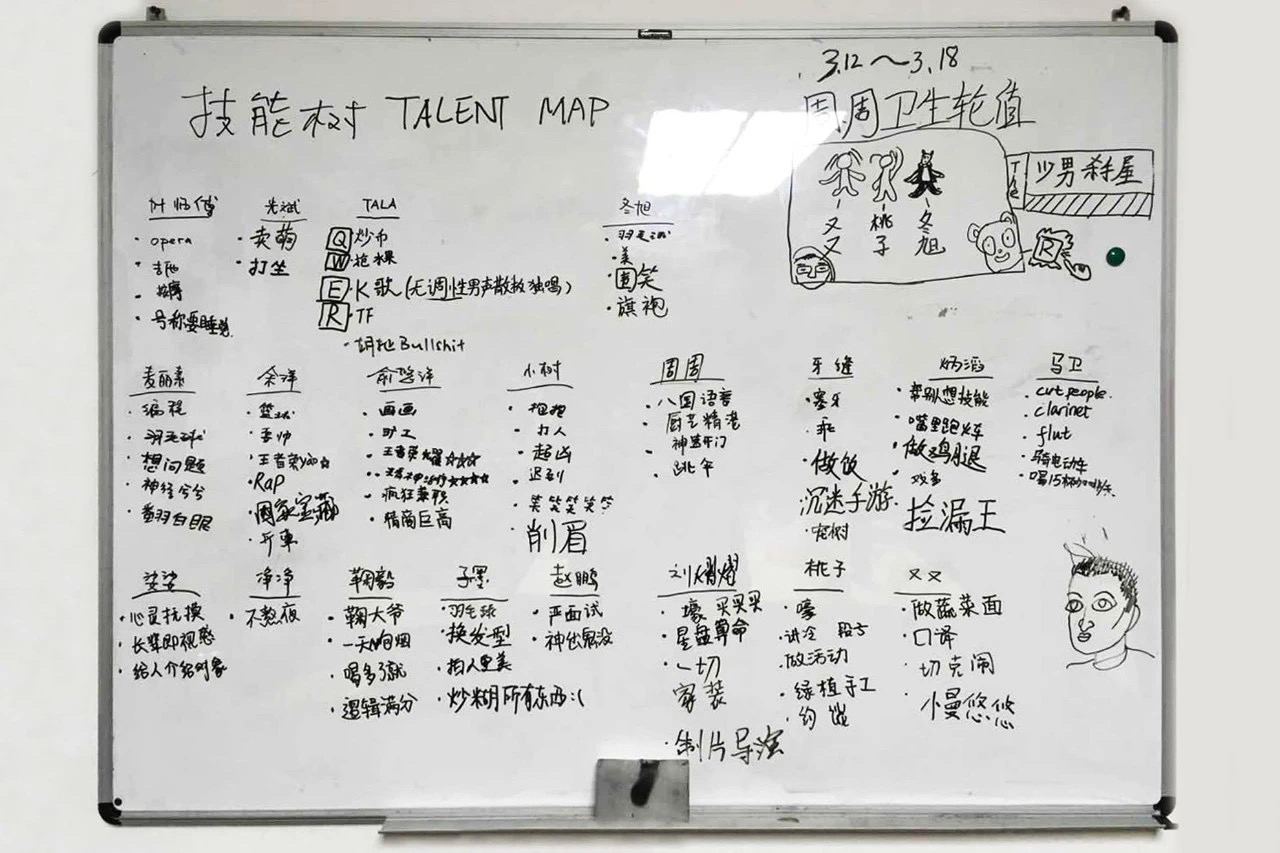 技能树 TALENT MAP
3.12～3.18
周周卫生轮值
又又
桃子
冬旭
少男杀手屋
叶师傅
· opera
· 吉他
· 按摩
· 号称要睡觉
光斌
· 卖萌
· 打坐
TALA
Q 炒币
W 抢水果
E K歌(无调性男声散板独唱)
R · TF
· 胡扯Bullshit
冬旭
· 美
· 圆笑
· 旗袍
麦丽素
· 编程
· 羽毛球
· 想问题
· 神经兮兮
· 翻白眼
余洋
· 篮球
· 耍帅
· 王者荣yao☆
· RaP
· 国家宝藏
· 斤車
俞路洋
· 画画
· 旷工
· 王者荣耀☆☆☆
· 疯狂兼职
· 情商巨高
小树
· 抱抱
· 打人
· 超凶
· 迟到
· 笑笑笑笑笑
削眉
周周
· 八国语言
· 厨艺精湛
· 神盛开门
· 跳伞
牙缝
· 塞牙
· 乖
· 做饭
沉迷手游
· 爬树
炳滔
· 帮别人想技能
· 嘴里跑火车
· 做鸡腿
· 戏多
捡漏王
马卫
· cut people.
· clarinet
· flut
· 骑电动车
· 喝15杯咖啡/天
娑娑
· 心灵抚摸
· 长辈即视感
· 给人介绍对象
净净
· 不熬夜
鞠毅
· 鞠大爷
· 一天N包烟
· 喝多了就
· 逻辑满分
子墨
· 羽毛球
· 换发型
· 拍人更美
· 炒糊所有东西:(
赵鹏
· 严面试
· 神出鬼没
刘熠熠
· 壕 买买买
· 星盘算命
· 一切
家装
· 制片导演
桃子
· 嚎
· 讲冷 段方
· 做活动
· 绿植手工
· 约饭
又又
· 做蔬菜面
· 口译
· 切克闹
· 慢悠悠